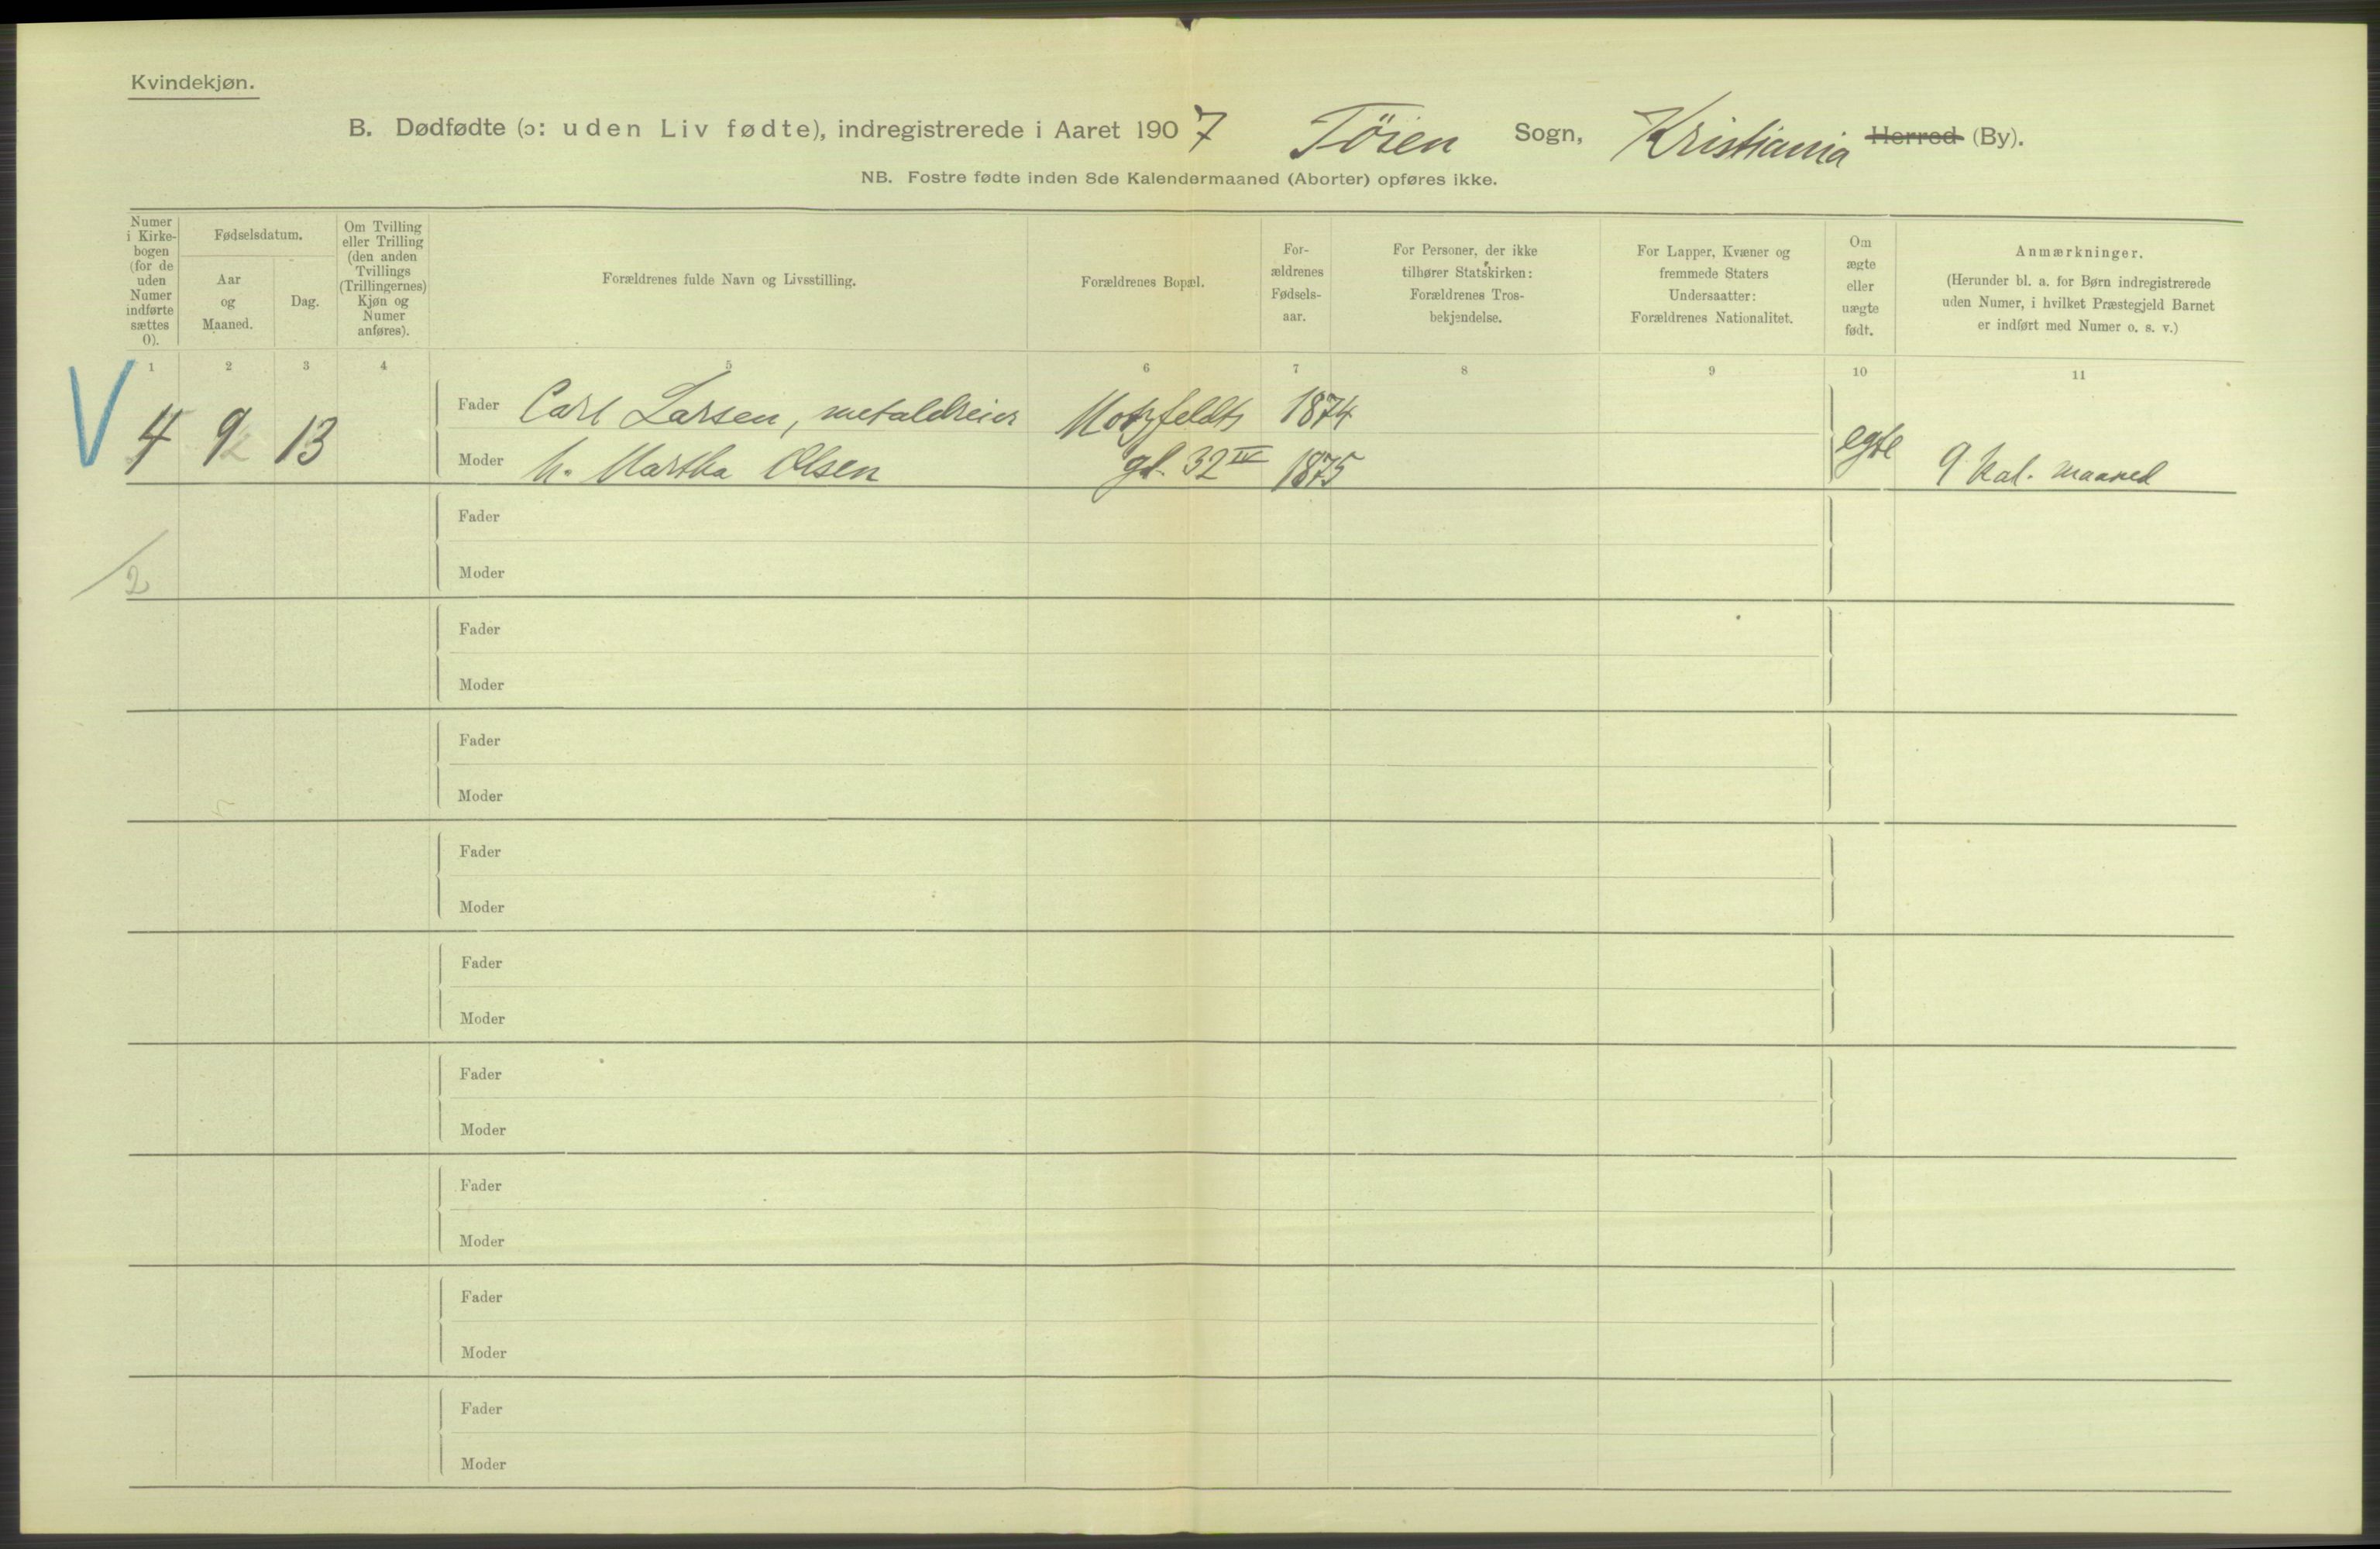 Kvindekjøn.
B. Dødfødte (ɔ: uden Liv fødte), indregistrerede i Aaret 1907 Töien Sogn, Kristiania Herred (By).
NB. Fostre fødte inden 8de Kalendermaaned (Aborter) opføres ikke.
Numer
i Kirke-
bogen
(for de
uden
Numer
indførte
sættes
0).
Fødselsdatum.
Aar
og
Maaned.
Dag.
Om Tvilling
eller Trilling
(den anden
Tvillings
(Trillingernes)
Kjøn og
Numer
anføres).
Forældrenes fulde Navn og Livsstilling.
Forældrenes Bopæl.
For-
ældrenes
Fødsels-
aar.
For Personer, der ikke
tilhører Statskirken:
Forældrenes Tros-
bekjendelse.
For Lapper, Kvæner og
fremmede Staters
Undersaatter:
Forældrenes Nationalitet.
Om
ægte
eller
uægte
født.
Anmærkninger.
(Herunder bl. a. for Børn indregistrerede
uden Numer, i hvilket Præstegjeld Barnet
er indført med Numer o. s. v.)
1 2 3 4 5 6 7 8 9 10 11
V 4 9 13
Fader Carl Larsen, metaldreier Motzfeldts 1874
Moder h. Martha Olsen gd. 32 IV 1875 egte 9 kal. maaned
Fader
2 Moder
Fader
Moder
Fader
Moder
Fader
Moder
Fader
Moder
Fader
Moder
Fader
Moder
Fader
Moder
Fader
Moder